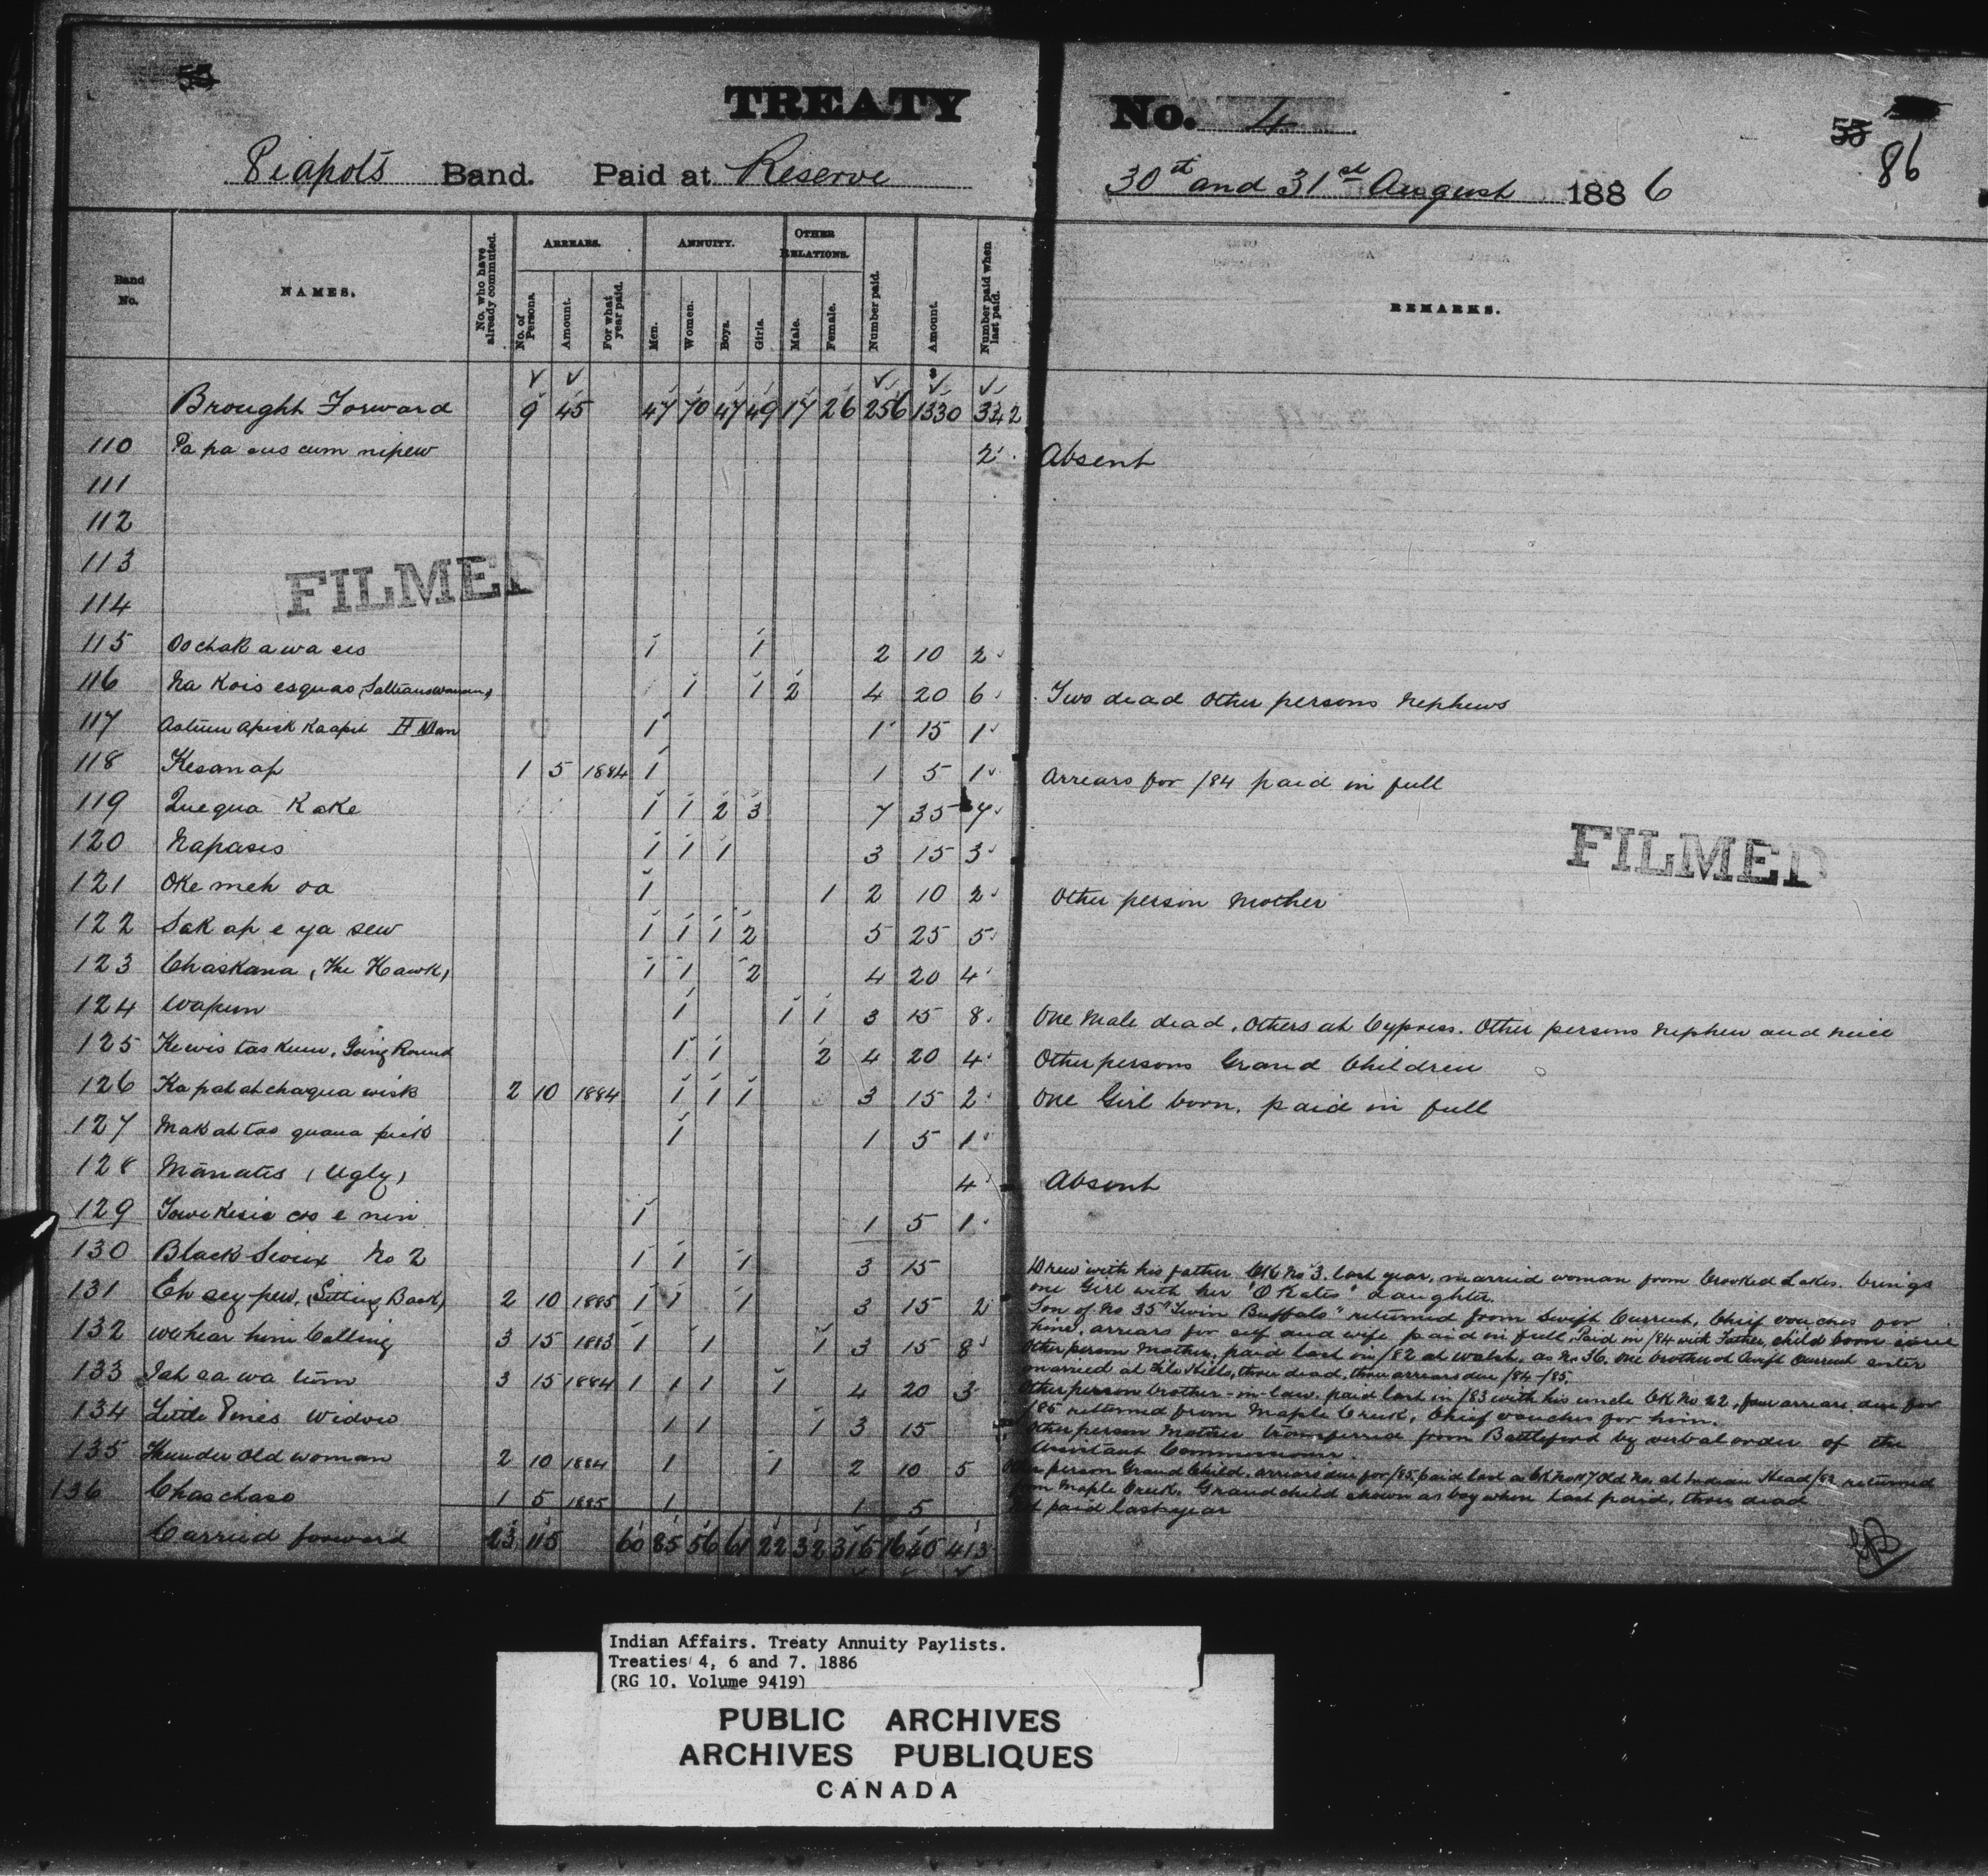 55
TREATY No. 4
55
86
Peapots Band. Paid at Reserve 30th and 31st August 1886
Band No. NAMES. No. who have already commuted. ARREARS. No. of Persons. Amount. For what year paid. ANNUITY. Men. Women. Boys. Girls. OTHER RELATIONS. Male. Female. Number paid. Amount. Number paid when last paid. REMARKS.
Brought Forward 9 45 47 70 47 49 17 26 256 1330 332
110 Pa pa cus cum nipew 2 Absent
111
112
113
114
FILMED
115 Oochak a wa sis 1 1 2 10 2
116 Na Kois esquao (Saltiaus woman) 1 1 2 4 20 6 Two dead other persons Nephews
117 Apisk Kaapit H Man 1 1 15 1
118 Kesanap 1 5 1884 1 1 5 1 Arrears for /84 paid in full
119 Quequa Kake 1 1 2 3 7 35 7
FILMED
120 Napasis 1 1 1 3 15 3
121 Oke meh oa 1 1 2 10 2 Other person Mother
122 Sak ap e ya sew 1 1 1 2 5 25 5
123 Chaskana (The Hawk) 1 1 2 4 20 4
124 Wapun 1 1 1 3 15 8 One Male dead, Others at Cypress. Other persons Nephew and neice
125 Kewis tas kum, Going Round 1 1 2 4 20 4 Other persons Grand Children
126 Ka pat at chaqua wisk 2 10 1884 1 1 1 3 15 2 One Girl born, paid in full
127 Mak ah tas quana 1 1 5 1
128 Mānatis (Ugly) 4 Absent
129 Towekisic e nin 1 1 5 1
130 Black Sioux No 2 1 1 1 3 15 Drew with his father CK No 3. last year, married woman from Crooked Lakes. brings
one Girl with her "O'Kates" daughter.
131 Eh sey pew, (Sitting Back) 2 10 1885 1 1 1 3 15 2 Son of No 35 "Twin Buffalo" returned from Swift Current, Chief vouches for
him, arrears for self and wife paid in full. Paid in /84 with Father, child born since
132 We hear him Calling 3 15 1883 1 1 1 3 15 8 Other person Mother, paid last in /82 at Walsh, as No 36. one brother at Swift Current sister
married at File Hills, three dead, three arrears due /84-/85.
133 Jah sa wa tum 3 15 1884 1 1 1 1 4 20 3 Other person brother-in-law. paid last in /83 with his uncle CK No 22, four arrears due for
/85 returned from Maple Creek, Chief vouches for him.
134 Little Pines Widow 1 1 1 3 15 Other person Mother transferred from Battleford by verbal order of the
Assistant Commissioner
135 Thunder Old woman 2 10 1884 1 1 2 10 5 person Grand Child, arrears due for /85, paid last as CK No 17 Old No. at Indian Head /82 returned
from Maple Creek. Grandchild shown as boy when last paid, three dead
136 Chaschaso 1 5 1885 1 1 5 paid last year
Carried forward 23 115 60 85 56 61 22 32 316 1630 413
Indian Affairs. Treaty Annuity Paylists.
Treaties 4, 6 and 7. 1886
(RG 10, Volume 9419)
PUBLIC ARCHIVES
ARCHIVES PUBLIQUES
CANADA